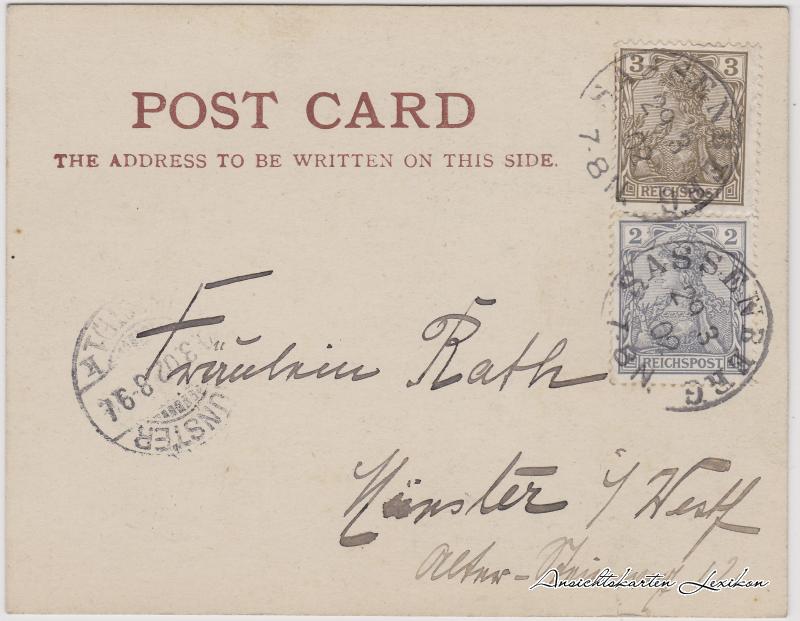 POST CARD
THE ADDRESS TO BE WRITTEN ON THIS SIDE.
3 3
REICHSPOST
SASSENBERG
29 3
02
7-8 N
2 2
REICHSPOST
SASSENBERG
29 3
02
7-8 N
MÜNSTER
3.02. 8-9
Fräulein Rath
Münster i/ Westf
Alter-Steinweg 42
Ansichtskarten Lexikon